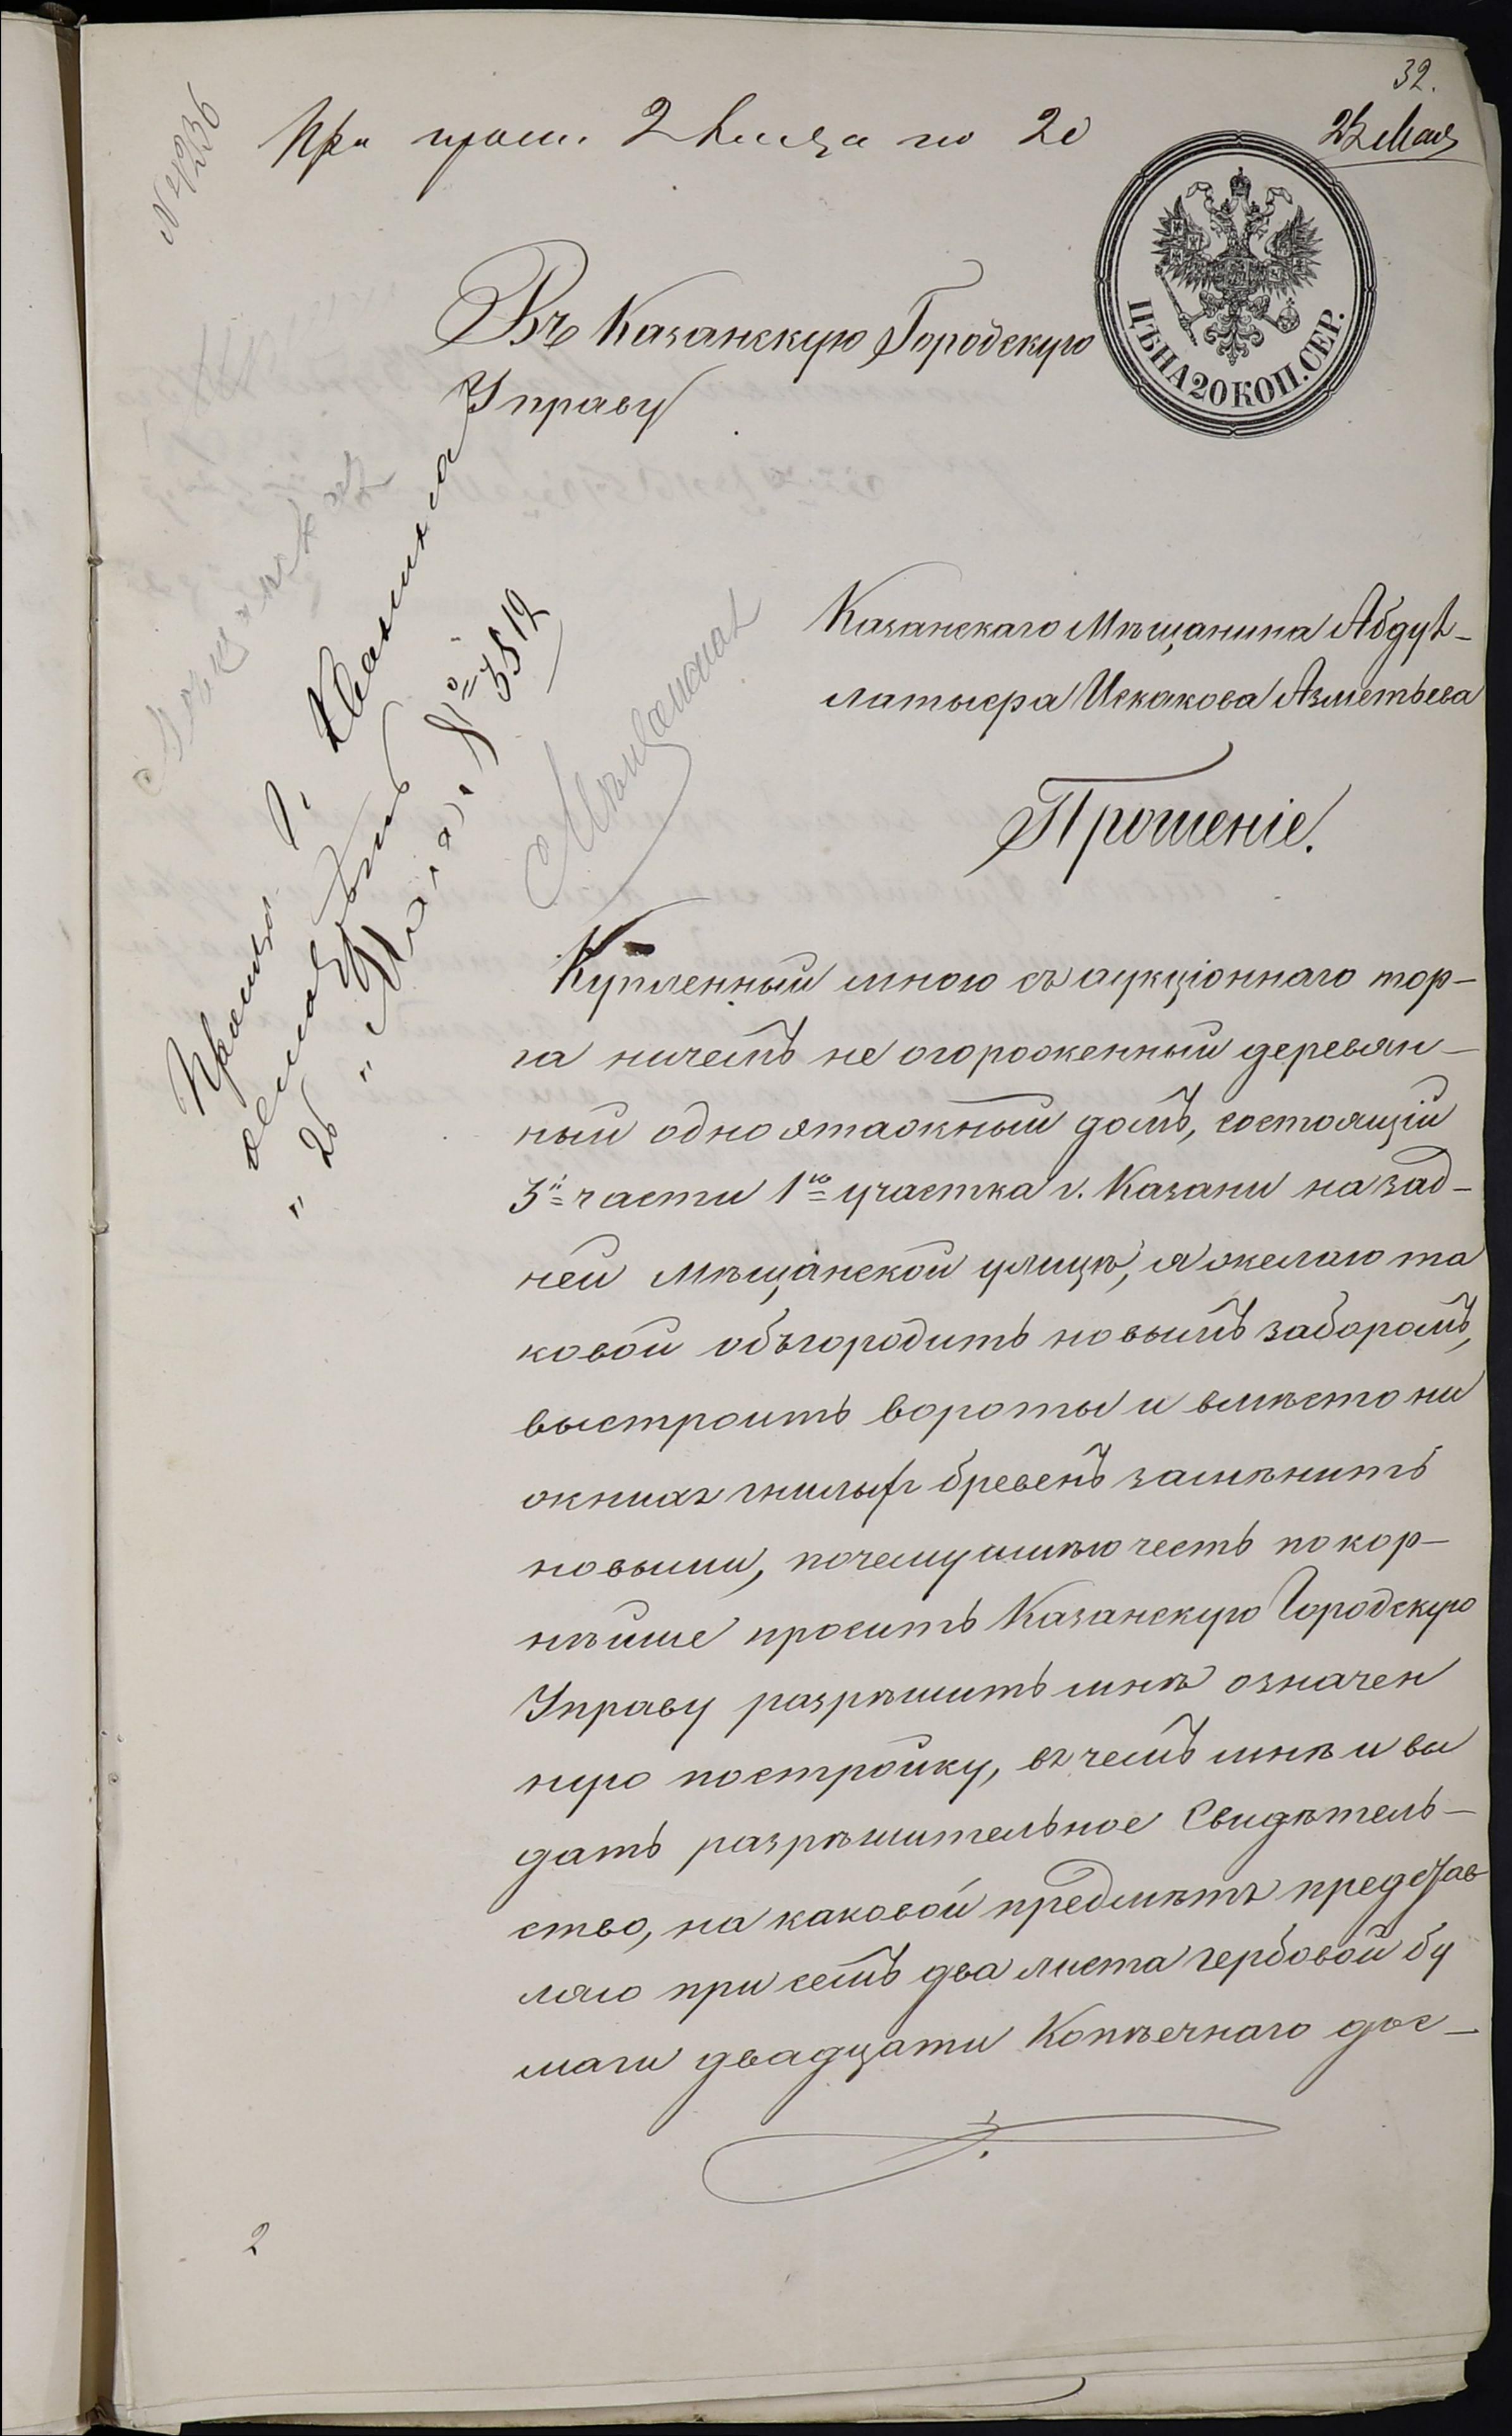 32.
22 Мая
№ 4236
При прош. 2 листа по 20
ЦѢНА 20 КОП. СЕР.
Въ Казанскую Городскую
Управу
Казанскаго Мѣщанина Абдул-
латыера Искакова Азметьева
Прошеніе.
Мѣщанская
26 Мая № 3512
Купленный мною съ аукціоннаго тор-
га ничемъ не огороженный деревян-
ный одноэтажный домъ, состоящій
3й части 1го участка г. Казани на зад-
ней Мѣщанской улицѣ, я желаю та
ковой объгородить новымъ заборомъ,
выстроить вороты и вмѣсто ни
жнихъ гнилыхъ бревенъ замѣнить
новыми, почему имѣю честь покор-
нѣише просить Казанскую Городскую
Управу разрѣшить мнѣ означен
ную постройку, въ чемъ мнѣ и вы
дать разрѣшительное Свидѣтель-
ство, на каковой предмѣтъ представ
ляю при семъ два листа гербовой бу
маги двадцати Копѣечнаго дос-
2